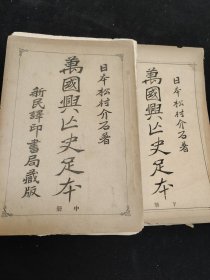 日本松村介石著
萬國興亡史足本
中册
新民譯印書局藏版
日本松村介石著
萬國興亡史足本
下册